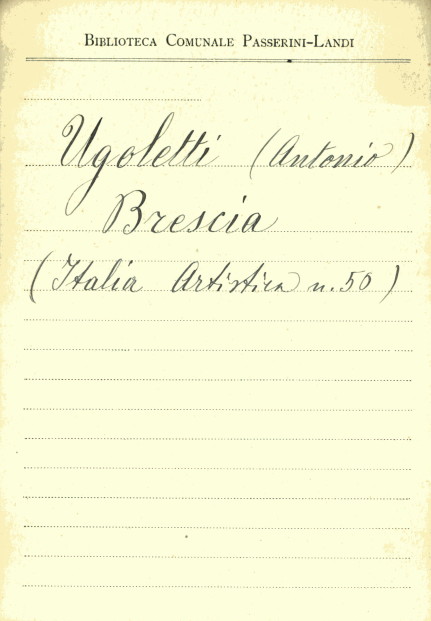 Biblioteca Comunale Passerini-Landi
Ugoletti (Antonio)
Brescia
(Italia Artistica n. 50)